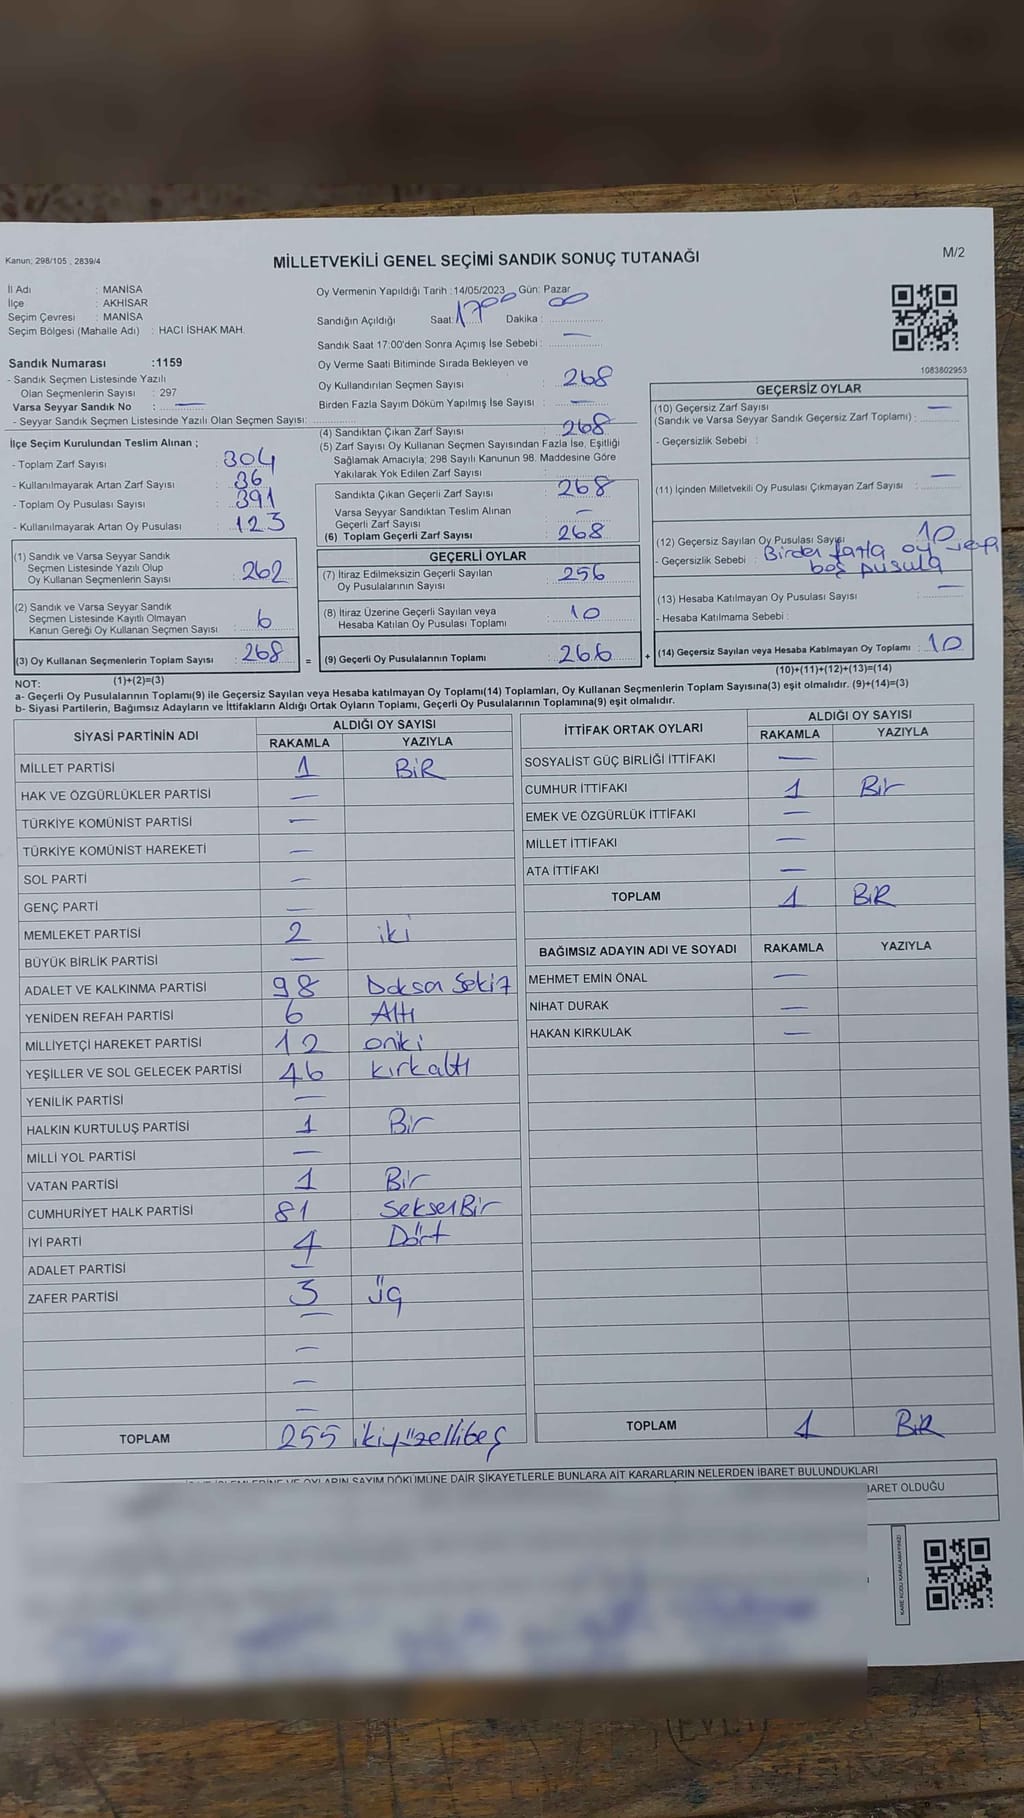 Kanun; 298/105 , 2839/4
MİLLETVEKİLİ GENEL SEÇİMİ SANDIK SONUÇ TUTANAĞI
M/2
İl Adı : MANİSA
İlçe : AKHİSAR
Seçim Çevresi : MANİSA
Seçim Bölgesi (Mahalle Adı) : HACI İSHAK MAH.
Sandık Numarası :1159
- Sandık Seçmen Listesinde Yazılı
Olan Seçmenlerin Sayısı : 297
Varsa Seyyar Sandık No : —
- Seyyar Sandık Seçmen Listesinde Yazılı Olan Seçmen Sayısı:
İlçe Seçim Kurulundan Teslim Alınan ;
- Toplam Zarf Sayısı : 304
- Kullanılmayarak Artan Zarf Sayısı : 36
- Toplam Oy Pusulası Sayısı : 391
- Kullanılmayarak Artan Oy Pusulası : 123
(1) Sandık ve Varsa Seyyar Sandık
Seçmen Listesinde Yazılı Olup
Oy Kullanan Seçmenlerin Sayısı : 262
(2) Sandık ve Varsa Seyyar Sandık
Seçmen Listesinde Kayıtlı Olmayan
Kanun Gereği Oy Kullanan Seçmen Sayısı : 6
(3) Oy Kullanan Seçmenlerin Toplam Sayısı : 268
(1)+(2)=(3)
Oy Vermenin Yapıldığı Tarih :14/05/2023 Gün: Pazar
Sandığın Açıldığı Saat: 17:00 Dakika : 00
Sandık Saat 17:00'den Sonra Açımış İse Sebebi : —
Oy Verme Saati Bitiminde Sırada Bekleyen ve
Oy Kullandırılan Seçmen Sayısı : 268
Birden Fazla Sayım Döküm Yapılmış İse Sayısı : —
(4) Sandıktan Çıkan Zarf Sayısı : 268
(5) Zarf Sayısı Oy Kullanan Seçmen Sayısından Fazla İse, Eşitliği
Sağlamak Amacıyla; 298 Sayılı Kanunun 98. Maddesine Göre
Yakılarak Yok Edilen Zarf Sayısı :
Sandıkta Çıkan Geçerli Zarf Sayısı : 268
Varsa Seyyar Sandıktan Teslim Alınan
Geçerli Zarf Sayısı : —
(6) Toplam Geçerli Zarf Sayısı : 268
GEÇERLİ OYLAR
(7) İtiraz Edilmeksizin Geçerli Sayılan
Oy Pusulalarının Sayısı : 256
(8) İtiraz Üzerine Geçerli Sayılan veya
Hesaba Katılan Oy Pusulası Toplamı : 10
= (9) Geçerli Oy Pusulalarının Toplamı : 266 +
1083802953
GEÇERSİZ OYLAR
(10) Geçersiz Zarf Sayısı —
(Sandık ve Varsa Seyyar Sandık Geçersiz Zarf Toplamı) :
- Geçersizlik Sebebi :
(11) İçinden Milletvekili Oy Pusulası Çıkmayan Zarf Sayısı : —
(12) Geçersiz Sayılan Oy Pusulası Sayısı 10
- Geçersizlik Sebebi : Birden fazla oy veya
boş pusula
(13) Hesaba Katılmayan Oy Pusulası Sayısı : —
- Hesaba Katılmama Sebebi :
(14) Geçersiz Sayılan veya Hesaba Katılmayan Oy Toplamı : 10
(10)+(11)+(12)+(13)=(14)
NOT:
a- Geçerli Oy Pusulalarının Toplamı(9) ile Geçersiz Sayılan veya Hesaba katılmayan Oy Toplamı(14) Toplamları, Oy Kullanan Seçmenlerin Toplam Sayısına(3) eşit olmalıdır. (9)+(14)=(3)
b- Siyasi Partilerin, Bağımsız Adayların ve İttifakların Aldığı Ortak Oyların Toplamı, Geçerli Oy Pusulalarının Toplamına(9) eşit olmalıdır.
SİYASİ PARTİNİN ADI ALDIĞI OY SAYISI
RAKAMLA YAZIYLA
MİLLET PARTİSİ 1 BİR
HAK VE ÖZGÜRLÜKLER PARTİSİ —
TÜRKİYE KOMÜNİST PARTİSİ —
TÜRKİYE KOMÜNİST HAREKETİ —
SOL PARTİ —
GENÇ PARTİ —
MEMLEKET PARTİSİ 2 iki
BÜYÜK BİRLİK PARTİSİ —
ADALET VE KALKINMA PARTİSİ 98 Doksan Sekiz
YENİDEN REFAH PARTİSİ 6 Altı
MİLLİYETÇİ HAREKET PARTİSİ 12 oniki
YEŞİLLER VE SOL GELECEK PARTİSİ 46 kırkaltı
YENİLİK PARTİSİ —
HALKIN KURTULUŞ PARTİSİ 1 Bir
MİLLİ YOL PARTİSİ —
VATAN PARTİSİ 1 Bir
CUMHURİYET HALK PARTİSİ 81 SeksenBir
İYİ PARTİ 4 Dört
ADALET PARTİSİ —
ZAFER PARTİSİ 3 üç
—
—
—
—
TOPLAM 255 ikiyüzellibeş
İTTİFAK ORTAK OYLARI ALDIĞI OY SAYISI
RAKAMLA YAZIYLA
SOSYALİST GÜÇ BİRLİĞİ İTTİFAKI —
CUMHUR İTTİFAKI 1 Bir
EMEK VE ÖZGÜRLÜK İTTİFAKI —
MİLLET İTTİFAKI —
ATA İTTİFAKI —
TOPLAM 1 BİR
BAĞIMSIZ ADAYIN ADI VE SOYADI RAKAMLA YAZIYLA
MEHMET EMİN ÖNAL —
NİHAT DURAK —
HAKAN KIRKULAK —
TOPLAM 1 BİR
OYLARIN SAYIM DÖKÜMÜNE DAİR ŞİKAYETLERLE BUNLARA AİT KARARLARIN NELERDEN İBARET BULUNDUKLARI
İBARET OLDUĞU
KARE KODU KARALAMAYINIZ!